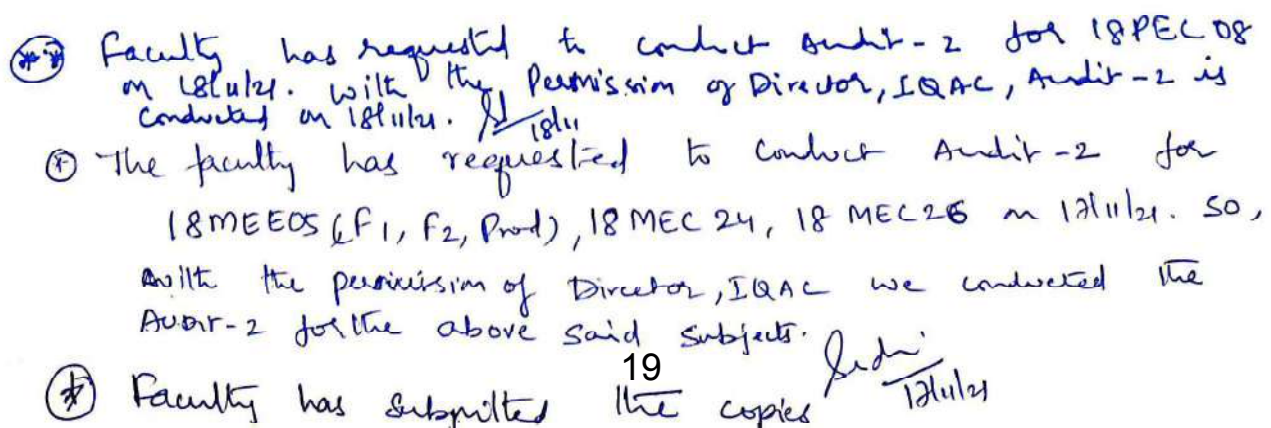 ** Faculty has requested to conduct Audit-2 for 18PEC08
on 18/11/21. with the Permission of Director, IQAC, Audit-2 is
conducted on 18/11/21. 18/11
* The faculty has requested to conduct Audit-2 for
18MEE05 (F1, F2, Prod), 18 MEC 24, 18 MEC26 on 17/11/21. SO,
with the permission of Director, IQAC we conducted the
AUDIT-2 for the above said subjects.
19
17/11/21
* Faculty has submitted the copies